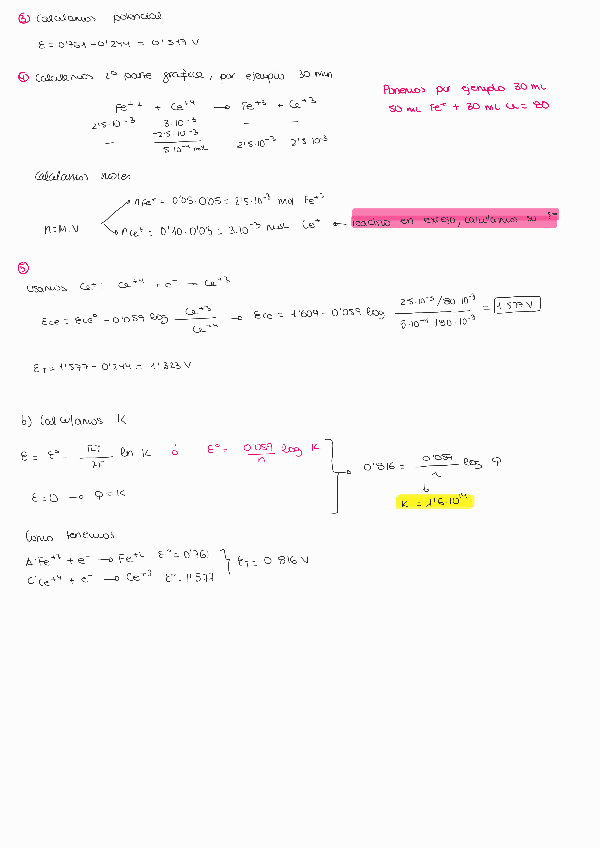 ③ Calculamos potencial
E = 0'761 - 0'244 = 0'517 V
④ Calculamos 2ª parte gráfica, por ejemplo 30 min
Ponemos por ejemplo 30 mL
50 mL Fe⁺ + 30 mL Ce = 80
Fe⁺² + Ce⁺⁴ → Fe⁺³ + Ce⁺³
2'5·10⁻³ 3·10⁻³ – –
– -2'5·10⁻³
5·10⁻⁴ mol 2'5·10⁻³ 2'5·10⁻³
Calculamos moles
n = M·V
n Fe⁺ = 0'05·0'05 = 2'5·10⁻³ mol Fe⁺²
n Ce⁺ = 0'10·0'03 = 3·10⁻³ mol Ce⁺ ← reactivo en exceso, calculamos su
⑤
Usamos Ce⁺: Ce⁺⁴ + e⁻ → Ce⁺³
Ece = Ece° - 0'059 log Ce⁺³/Ce⁺⁴ → Ece = 1'604 - 0'059 log 2'5·10⁻³/80·10⁻³ / 5·10⁻⁴/80·10⁻³ = 1'577 V
E_T = 1'577 - 0'244 = 1'323 V
b) Calculamos K
E = E° - RT/nF ln K ó E° = 0'059/n log K
0'816 = 0'059/n log Q
E = 0 → Q = K
K = 1'6·10¹⁴
Como tenemos
A: Fe⁺³ + e⁻ → Fe⁺² E° = 0'761
C: Ce⁺⁴ + e⁻ → Ce⁺³ E° = 1'577
E_T = 0'816 V